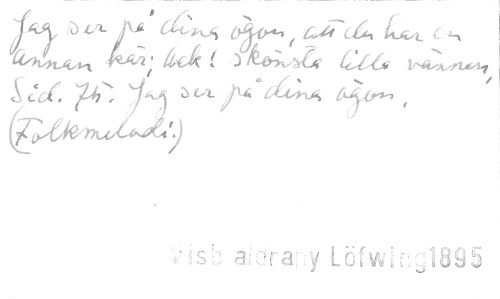 Jag ser på dina ögon, att du har en
annan kär; Ack! skönsta lilla vännen,
Sid. 75. Jag ser på dina ögon,
(Folkmelodi.)
Löfwing 1895